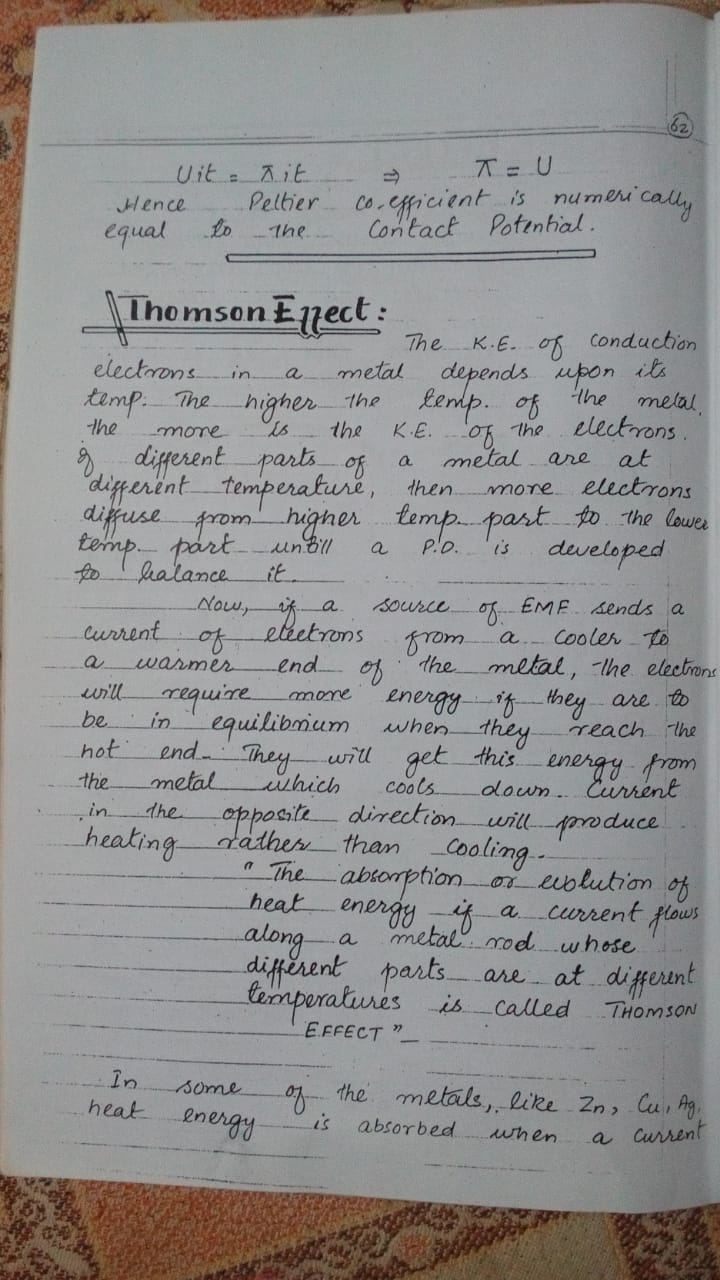 62
Uit = πit ⇒ π = U
Hence Peltier co-efficient is numerically
equal to the Contact Potential.
Thomson Effect:
The K.E. of conduction
electrons in a metal depends upon its
temp. The higher the temp. of the metal,
the more is the K.E. of the electrons.
If different parts of a metal are at
different temperature, then more electrons
diffuse from higher temp. part to the lower
temp. part untill a P.D. is developed
to balance it.
Now, if a source of EMF sends a
current of electrons from a cooler to
a warmer end of the metal, the electrons
will require more energy if they are to
be in equilibrium when they reach the
hot end. They will get this energy from
the metal which cools down. Current
in the opposite direction will produce
heating rather than cooling.
"The absorption or evolution of
heat energy if a current flows
along a metal rod whose
different parts are at different
temperatures is called THOMSON
EFFECT"
In some of the metals, like Zn, Cu, Ag,
heat energy is absorbed when a current